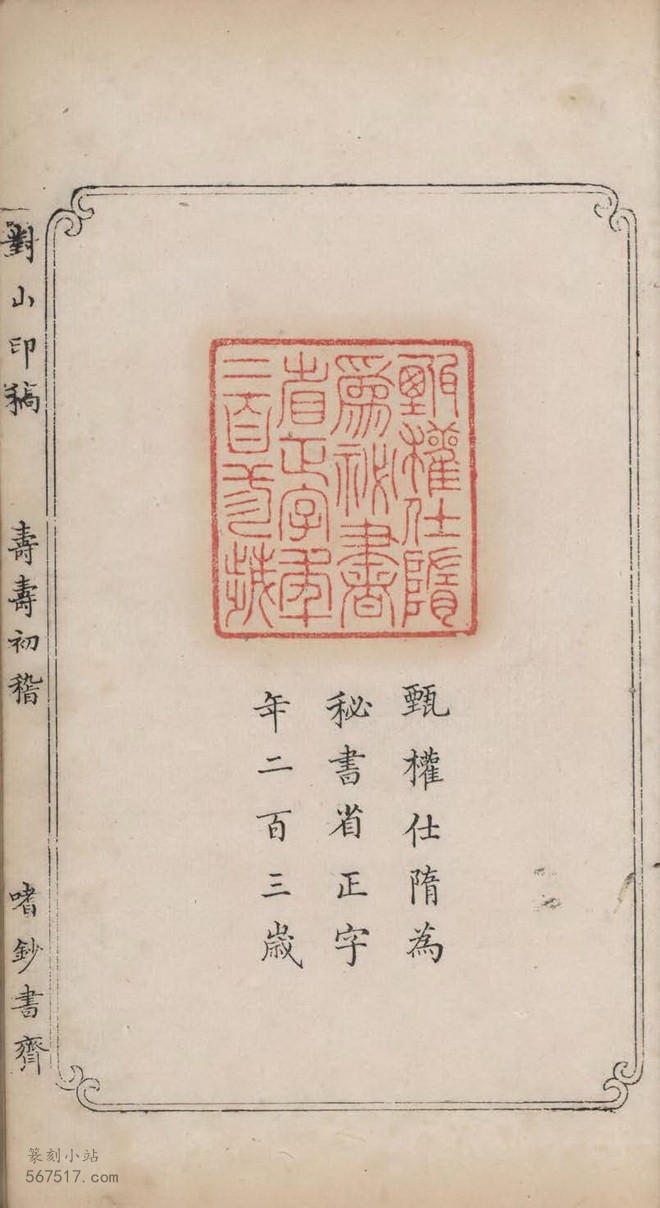 甄權仕隋
爲祕書
省正字年
二百三歲
甄權仕隋為
秘書省正字
年二百三歲
對山印稿 壽壽初稽 嗜鈔書齊
篆刻小站
567517.com